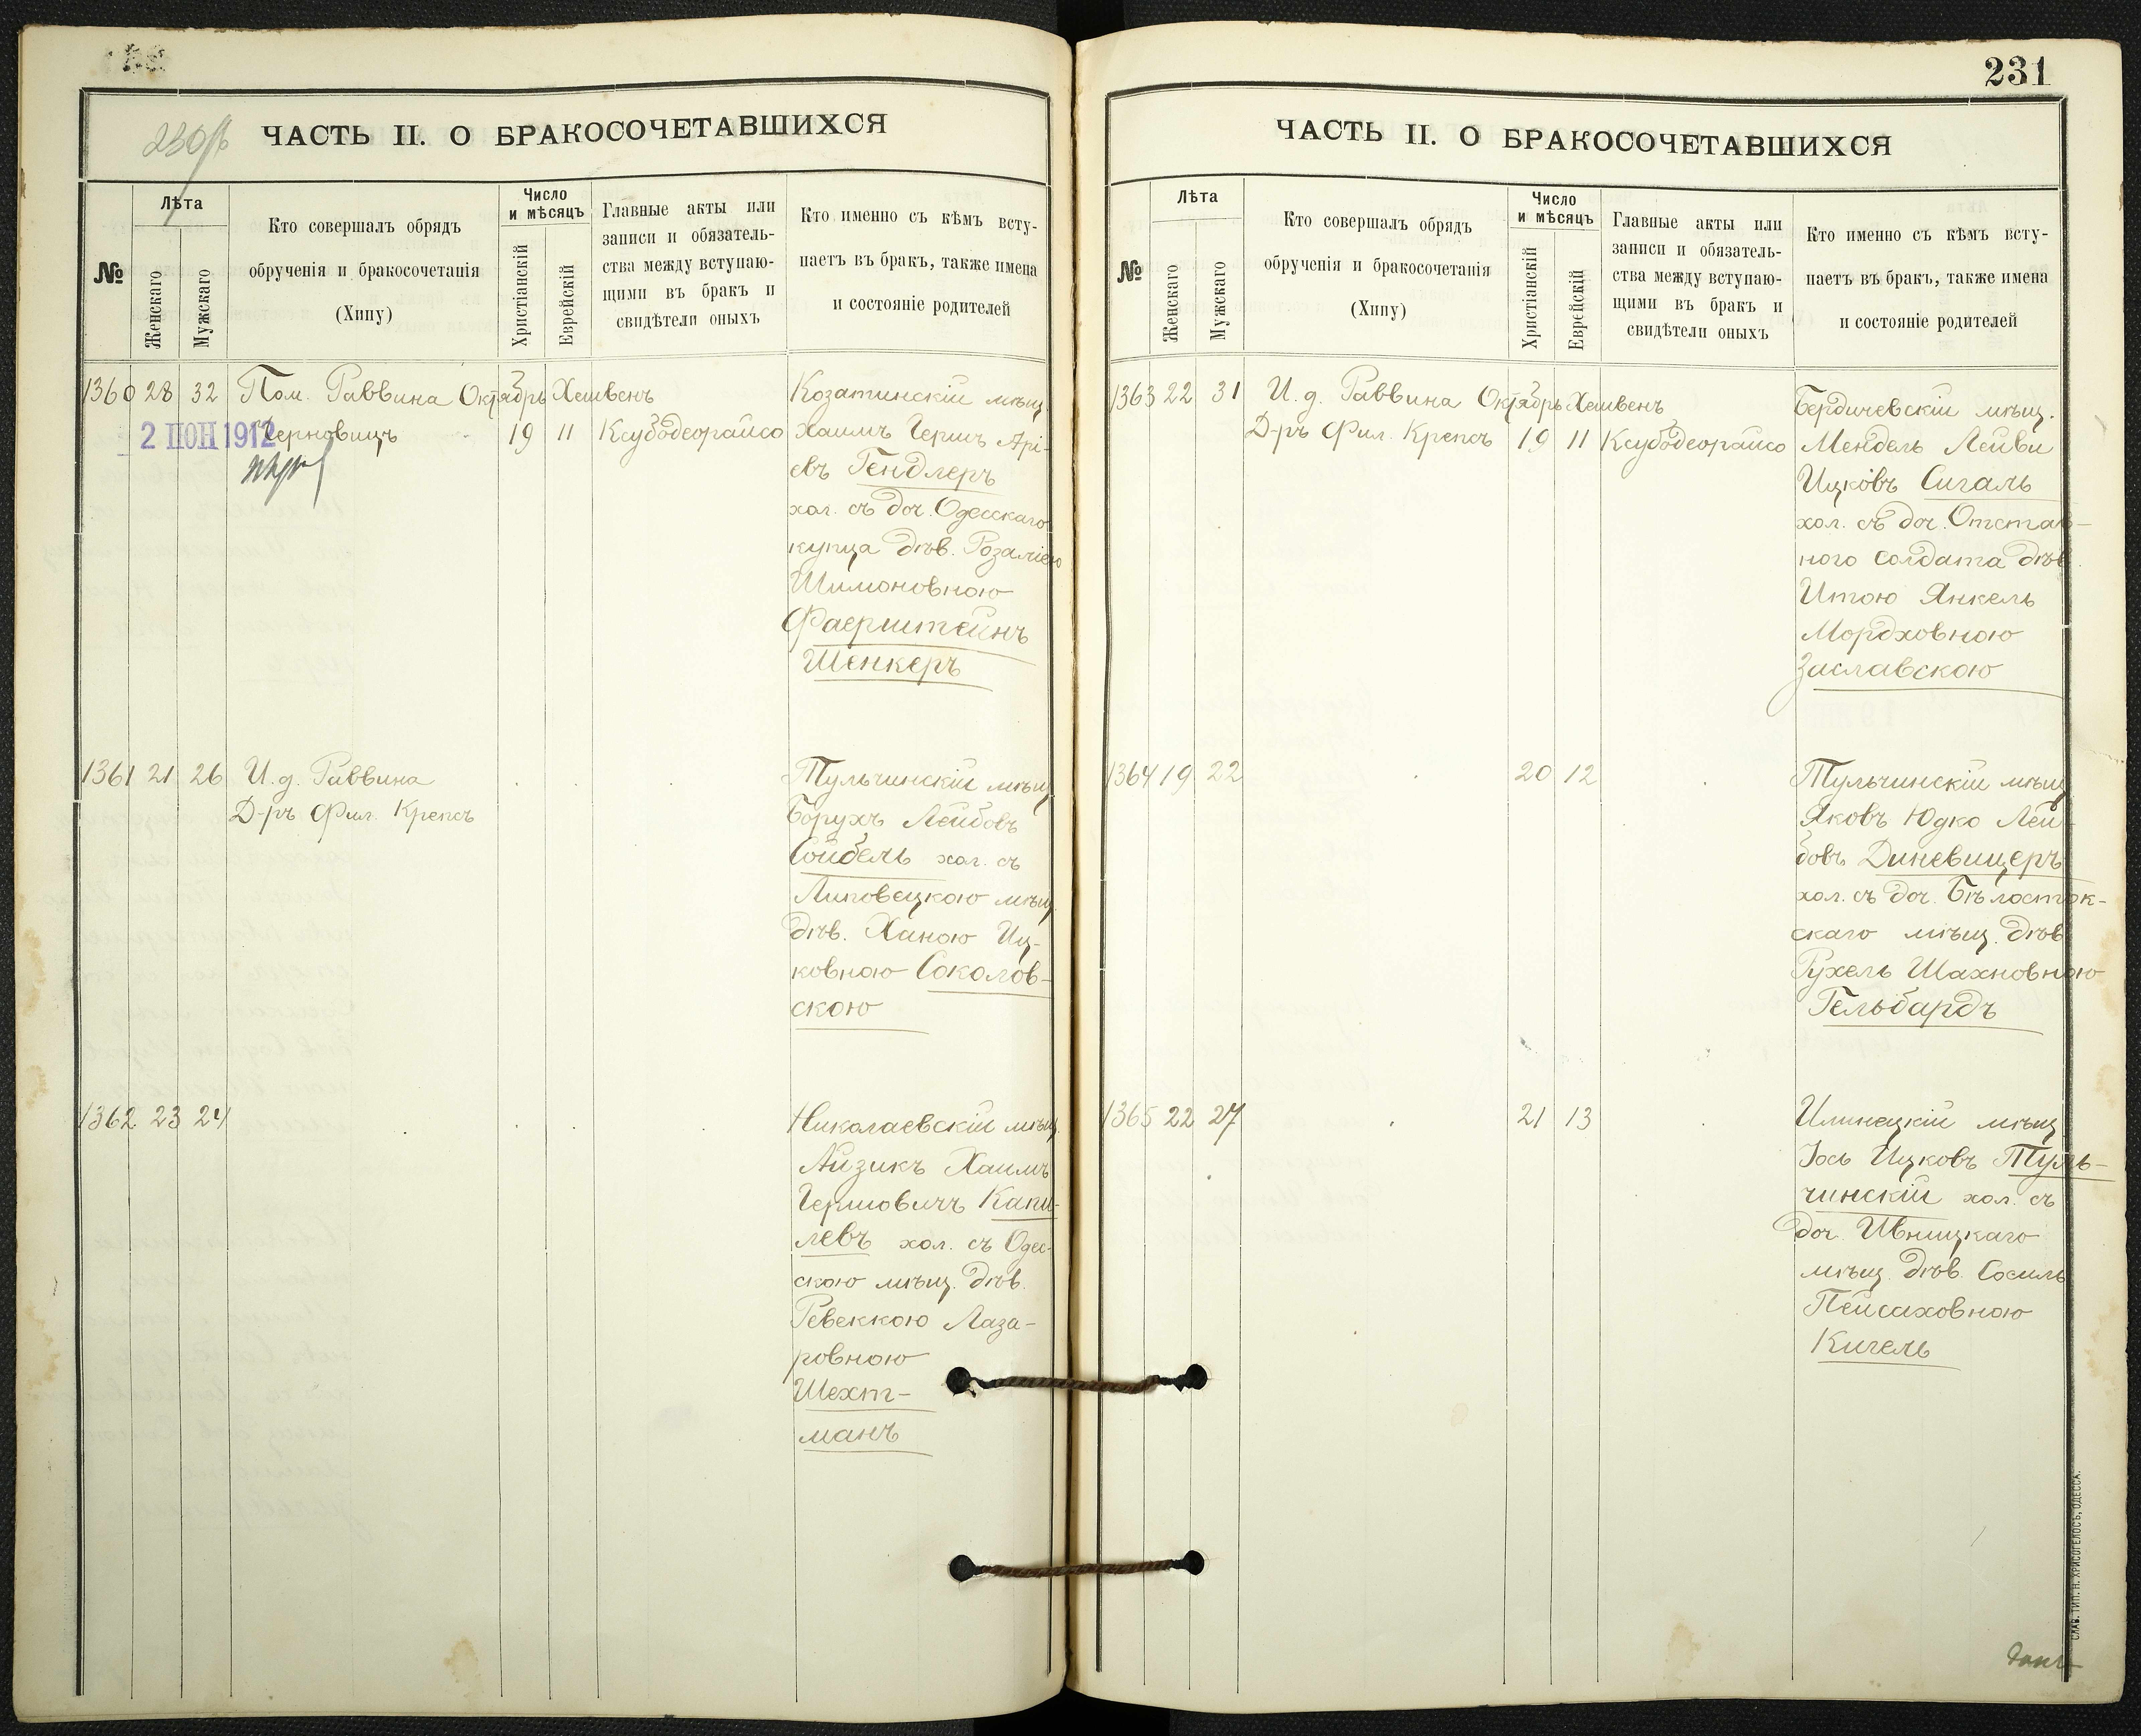 230 об
ЧАСТЬ II. О БРАКОСОЧЕТАВШИХСЯ
№
Лѣта
Женскаго
Мужскаго
Кто совершалъ обрядъ
обрученія и бракосочетанія
(Хипу)
Число
и мѣсяцъ
Христіанскій
Еврейскій
Главные акты или
записи и обязатель-
ства между вступаю-
щими въ бракъ и
свидѣтели оныхъ
Кто именно съ кѣмъ всту-
паетъ въ бракъ, также имена
и состояніе родителей
1360 28 32 Пом. Раввина Октябрь Хешвенъ
2 ІЮН 1912
Черновицъ 19 11 Ксубодеорайсо
Козатинскій мѣщ.
Хаимъ Гершъ Арі-
евъ Гендлеръ
хол. съ доч. Одесскаго
купца дѣв. Розаліею
Шимоновною
Фаерштейнъ
Шенкеръ
1361 21 26 И. д. Раввина
Д-ръ Фил. Крепсъ
Тульчинскій мѣщ.
Борухъ Лейбовъ
Сойбель хол. съ
Липовецкою мѣщ.
дѣв. Ханою Иц-
ковною Соколов-
скою
1362 23 24
Николаевскій мѣщ.
Айзикъ Хаимъ
Гершовичъ Капи-
левъ хол. съ Одес-
скою мѣщ. дѣв.
Ревеккою Лаза-
ровною
Шехт-
манъ
231
ЧАСТЬ II. О БРАКОСОЧЕТАВШИХСЯ
№
Лѣта
Женскаго
Мужскаго
Кто совершалъ обрядъ
обрученія и бракосочетанія
(Хипу)
Число
и мѣсяцъ
Христіанскій
Еврейскій
Главные акты или
записи и обязатель-
ства между вступаю-
щими въ бракъ и
свидѣтели оныхъ
Кто именно съ кѣмъ всту-
паетъ въ бракъ, также имена
и состояніе родителей
1363 22 31 И. д. Раввина Октябрь Хешвенъ
Д-ръ Фил. Крепсъ 19 11 Ксубодеорайсо
Бердичевскій мѣщ.
Мендель Лейви
Ицковъ Сигаль
хол. съ доч. Отстав-
ного солдата дѣв.
Итою Янкель
Мордховною
Заславскою
1364 19 22 20 12
Тульчинскій мѣщ
Яковъ Юдко Лей-
бовъ Диневицеръ
хол. съ доч. Бѣлосток-
скаго мѣщ. дѣв
Рухель Шахновною
Гельбардъ
1365 22 27 21 13
Илинецкій мѣщ
Іось Ицковъ Туль-
чинскій хол. съ
доч. Ивницкаго
мѣщ. дѣв. Сосиль
Пейсаховною
Кигель
СЛАВ. ТИП. Н. ХРИСОГЕЛОСЪ, ОДЕССА.